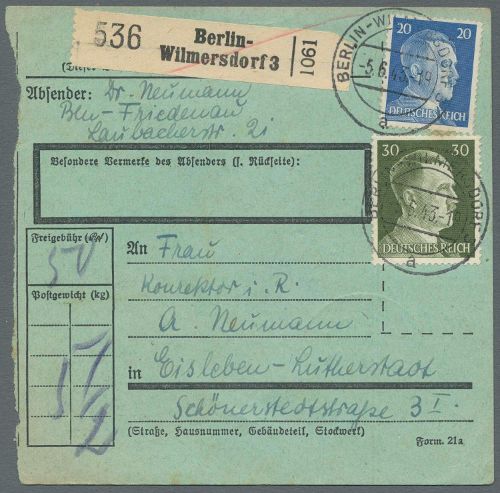 536
Berlin-
Wilmersdorf 3
1061
BERLIN-WILMERSDORF
5.6.43
a
20 20
DEUTSCHES REICH
Absender: Dr. Neumann
Bln-Friedenau
Laubacherstr. 2i
Besondere Vermerke des Absenders (s. Rückseite):
30 30
DEUTSCHES REICH
a
Freigebühr (Rpf)
50
Postgewicht (kg)
5 1/2
An Frau
Konrektor i. R.
A. Neumann
in Eisleben-Lutherstadt
Schönerstedtstraße 3 I.
(Straße, Hausnummer, Gebäudeteil, Stockwerk)
Form. 21a